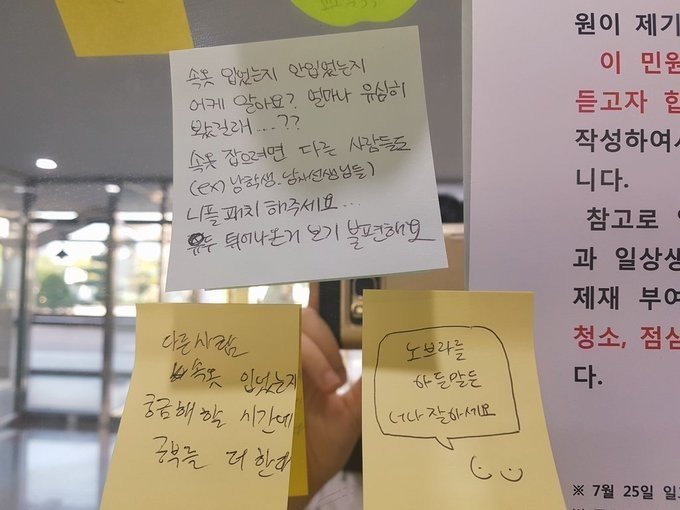 속옷 입었는지 안입었는지
어케 알아요? 얼마나 유심히
봤길래....??
속옷 잡으려면 다른 사람들도
(ex) 남학생. 남자선생님들)
니플패치 해주세요...
유두 튀어나온거 보기 불편해요
다른사람
속옷 입었는지
궁금해 할 시간에
공부를 더 한다
노브라를
하든말든
너나 잘하세요
원이 제기
이 민원
듣고자 합
작성하여서
니다.
참고로
과 일상생
제재 부여
청소, 점심
다.
※ 7월 25일 일